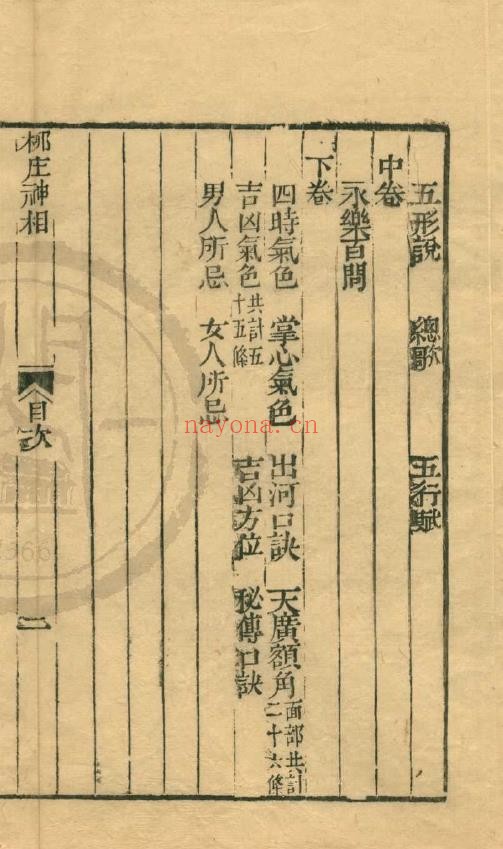 五形說 總歌 五行賦
中卷
永樂百問
下卷
四時氣色 掌心氣色 出河口訣 天廣額角 面部共計二十六條
吉凶氣色 共計五十五條 吉凶方位 秘傳口訣
男人所忌 女人所忌
柳庄神相 目次 二
nayona.cn